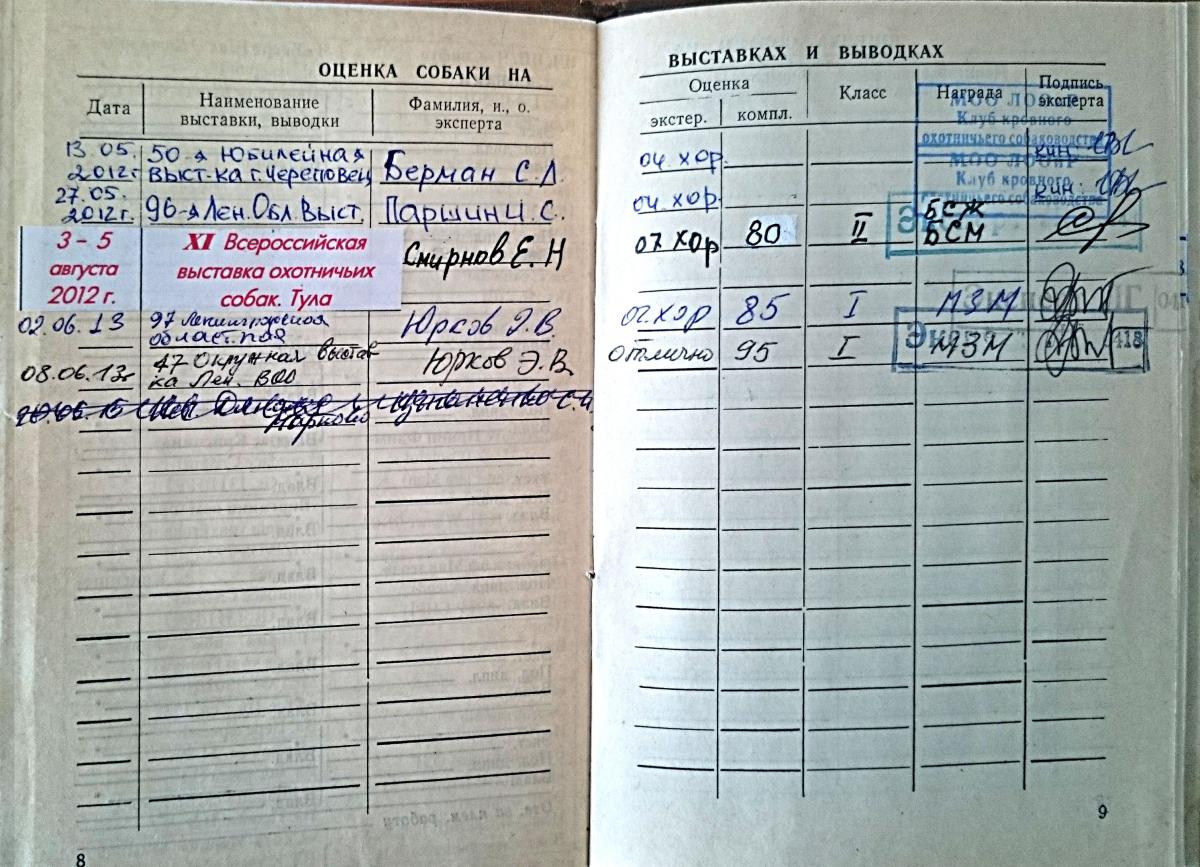 ОЦЕНКА СОБАКИ НА
Дата
Наименование
выставки, выводки
Фамилия, и., о.
эксперта
13.05.
2012г
50-я Юбилейная
выст-ка г. Череповец
Берман С.Л.
27.05.
2012г.
96-я Лен. Обл. Выст.
Паршин И.С.
3 – 5
августа
2012 г.
XI Всероссийская
выставка охотничьих
собак. Тула
Смирнов Е.Н
02.06.13
97 Ленинградская
областная
Юрков Э.В.
08.06.13г
47 Окружная выстав
ка Лен. ВОО
Юрков Э.В.
8
ВЫСТАВКАХ И ВЫВОДКАХ
Оценка
экстер.
компл.
Класс
Награда
Подпись
эксперта
МОО ЛООиР
Клуб кровного
охотничьего собаководства
оч. хор.
кин.
МОО ЛООиР
Клуб кровного
оч. хор.
кин.
оч хор
80
II
БСЖ
БСМ
оч. хор
85
I
МЗМ
отлично
95
I
МЗМ
418
9